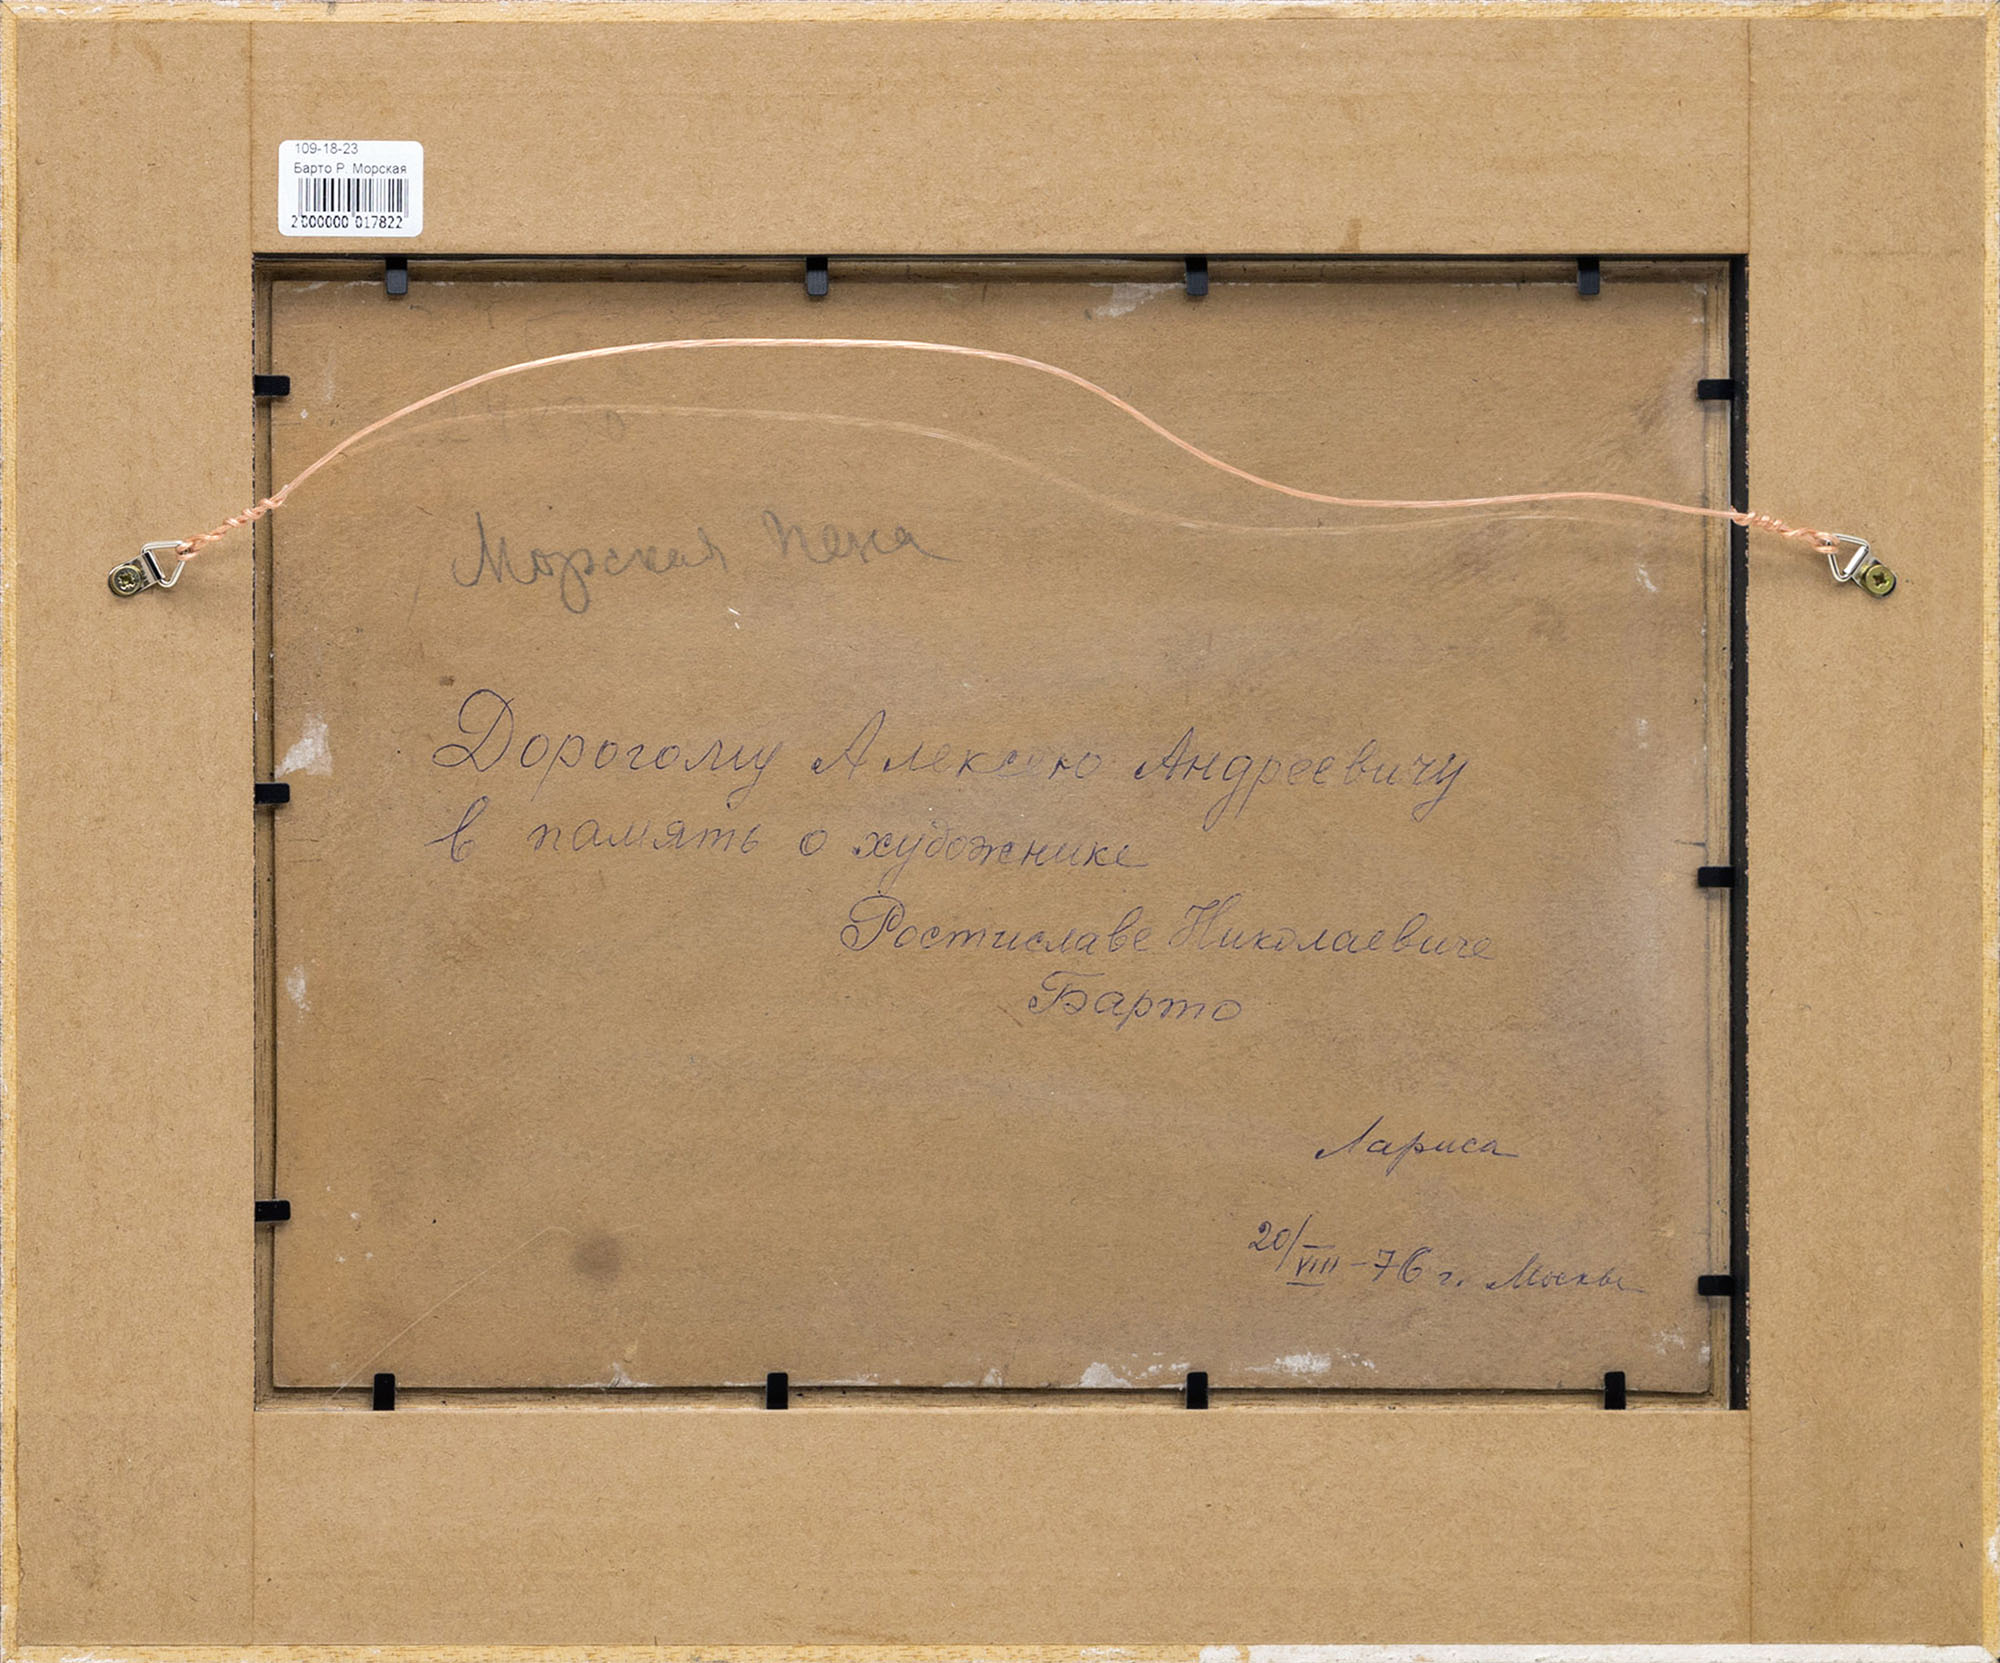 109-18-23
Барто Р. Морская
2000000 017822
Морская пена
Дорогому Алексею Андреевичу
в память о художнике
Ростиславе Николаевиче
Барто
Лариса
20/VIII-76 г. Москва